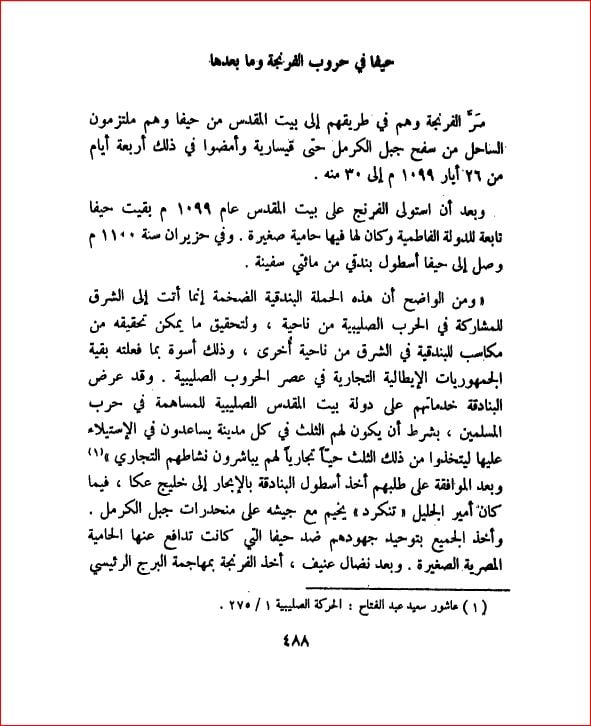 حيفا في حروب الفرنجة وما بعدها
مَرَّ الفرنجة وهم في طريقهم إلى بيت المقدس من حيفا وهم ملتزمون
الساحل من سفح جبل الكرمل حتى قيسارية وأمضوا في ذلك أربعة أيام
من ٢٦ أيار ١٠٩٩ م إلى ٣٠ منه .
وبعد أن استولى الفرنج على بيت المقدس عام ١٠٩٩ م بقيت حيفا
تابعة للدولة الفاطمية وكان لها فيها حامية صغيرة . وفي حزيران سنة ١١٠٠ م
وصل إلى حيفا أسطول بندقي من مائتي سفينة .
« ومن الواضح أن هذه الحملة البندقية الضخمة إنما أتت إلى الشرق
للمشاركة في الحرب الصليبية من ناحية ، ولتحقيق ما يمكن تحقيقه من
مكاسب للبندقية في الشرق من ناحية أُخرى ، وذلك أسوة بما فعلته بقية
الجمهوريات الإيطالية التجارية في عصر الحروب الصليبية . وقد عرض
البنادقة خدماتهم على دولة بيت المقدس الصليبية للمساهمة في حرب
المسلمين ، بشرط أن يكون لهم الثلث في كل مدينة يساعدون في الإستيلاء
عليها ليتخذوا من ذلك الثلث حيّاً تجارياً لهم يباشرون نشاطهم التجاري »(١)
وبعد الموافقة على طلبهم أخذ أسطول البنادقة بالإبحار إلى خليج عكا ، فيما
كان أمير الجليل « تنكرد » يخيم مع جيشه على منحدرات جبل الكرمل .
وأخذ الجميع بتوحيد جهودهم ضد حيفا التي كانت تدافع عنها الحامية
المصرية الصغيرة . وبعد نضال عنيف ، أخذ الفرنجة بمهاجمة البرج الرئيسي
(١) عاشور سعيد عبد الفتاح : الحركة الصليبية ١ / ٢٧٥ .
٤٨٨